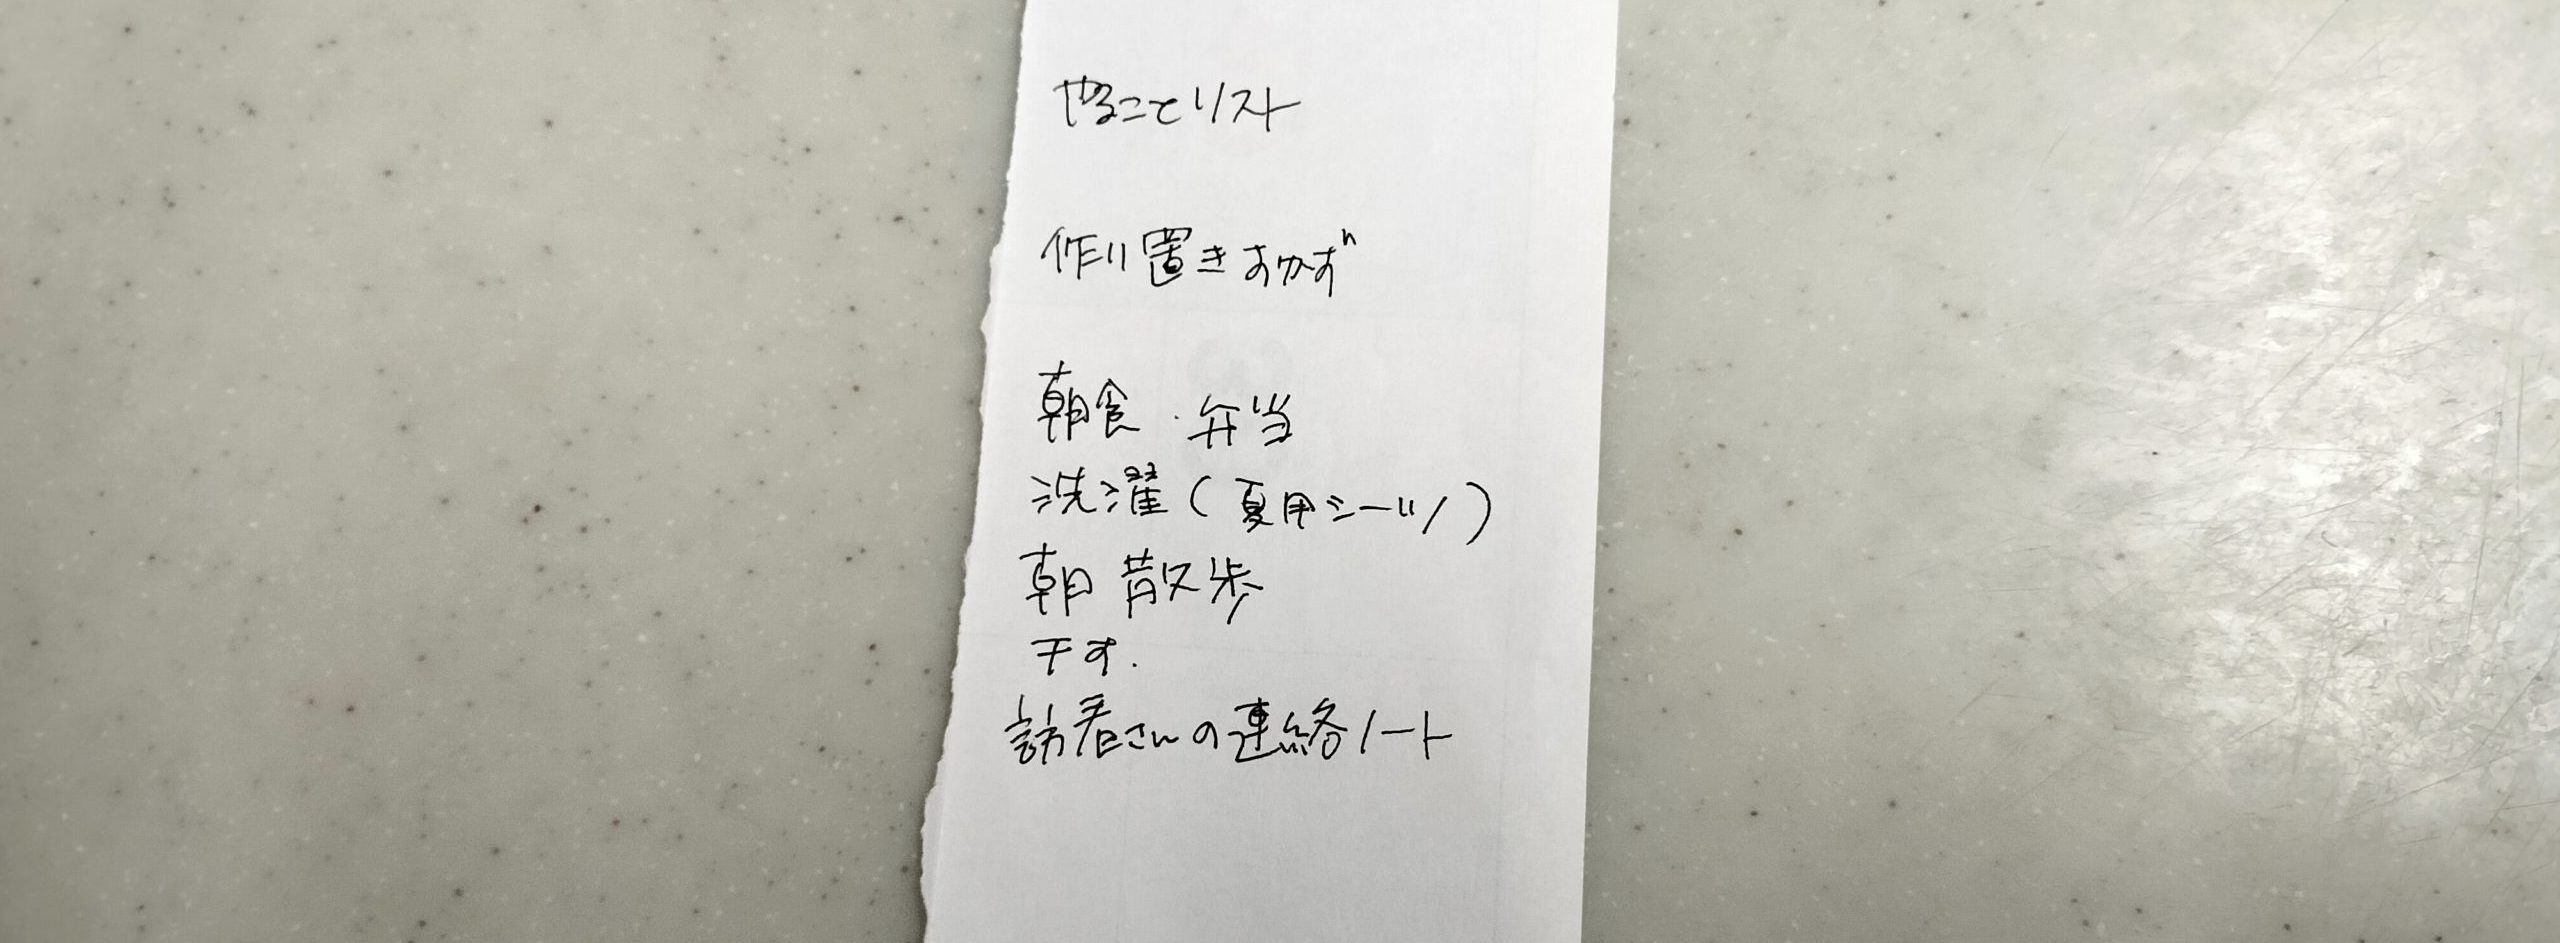 やることリスト
作り置きおかず
朝食・弁当
洗濯(夏用シーツ)
朝散歩
干す.
訪看さんの連絡ノート